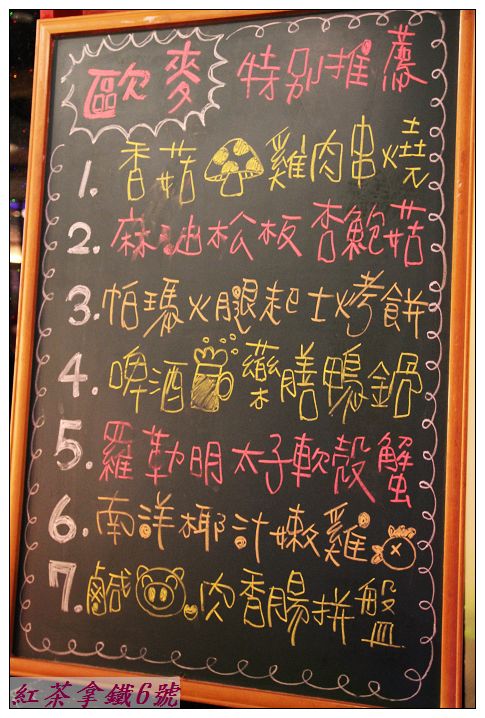 歐麥 特別推薦
1. 香菇雞肉串燒
2. 麻油松板杏鮑菇
3. 帕瑪火腿起士烤餅
4. 啤酒藥膳鴨鍋
5. 羅勒明太子軟殼蟹
6. 南洋椰汁嫩雞
7. 鹹肉香腸拼盤
紅茶拿鐵6號